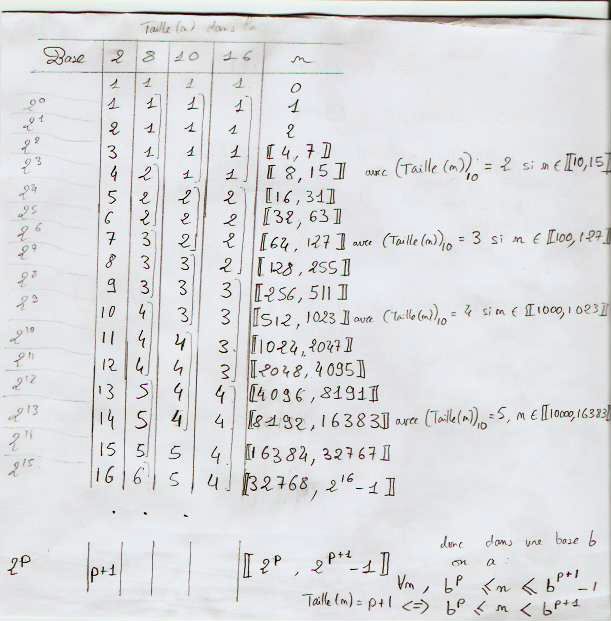 Taille(n) dans la
Base 2 8 10 16 n
1 1 1 1 0
2⁰ 1 1 1 1 1
2¹ 2 1 1 1 2
2² 3 1 1 1 ⟦4, 7⟧
2³ 4 2 1 1 ⟦8, 15⟧ avec (Taille(n))₁₀ = 2 si n ∈ ⟦10, 15⟧
2⁴ 5 2 2 2 ⟦16, 31⟧
2⁵ 6 2 2 2 ⟦32, 63⟧
2⁶ 7 3 2 2 ⟦64, 127⟧ avec (Taille(n))₁₀ = 3 si n ∈ ⟦100, 127⟧
2⁷ 8 3 3 2 ⟦128, 255⟧
2⁸ 9 3 3 3 ⟦256, 511⟧
2⁹ 10 4 3 3 ⟦512, 1023⟧ avec (Taille(n))₁₀ = 4 si n ∈ ⟦1000, 1023⟧
2¹⁰ 11 4 4 3 ⟦1024, 2047⟧
2¹¹ 12 4 4 3 ⟦2048, 4095⟧
2¹² 13 5 4 4 ⟦4096, 8191⟧
2¹³ 14 5 4 4 ⟦8192, 16383⟧ avec (Taille(n))₁₀ = 5, n ∈ ⟦10000, 16383⟧
2¹⁴ 15 5 5 4 ⟦16384, 32767⟧
2¹⁵ 16 6 5 4 ⟦32768, 2¹⁶-1⟧
. . . .
2ᵖ p+1 ⟦2ᵖ, 2ᵖ⁺¹-1⟧
donc dans une base b
on a :
∀n, bᵖ ≤ n ≤ bᵖ⁺¹-1
Taille(n) = p+1 <=> bᵖ ≤ n < bᵖ⁺¹